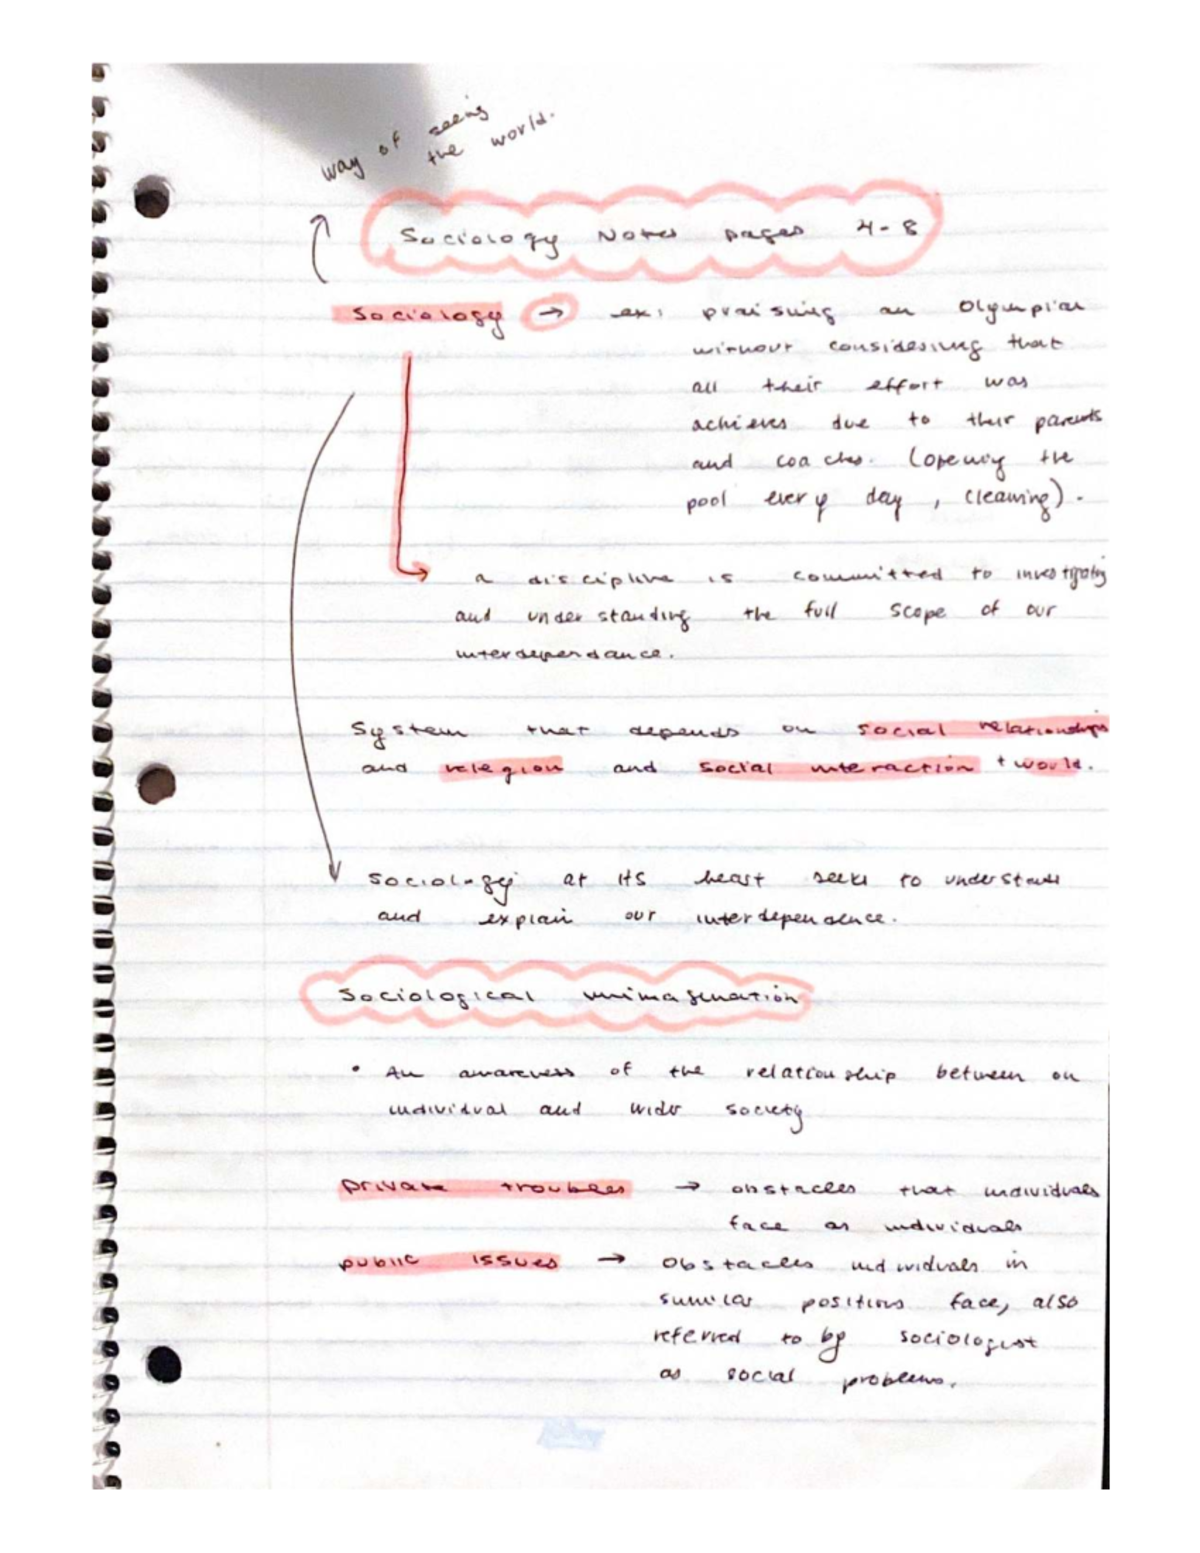 way of seeing
the world.
Sociology Notes pages 4-8
Sociology → ex: praising an Olympian
without considering that
all their effort was
achieves due to their parents
and coaches. (opening the
pool every day, cleaning).
a discipline is committed to investigating
and understanding the full scope of our
interdependance.
System that depends on social relationships
and relegion and social interaction + world.
Sociology at its heart seeks to understand
and explain our interdependence.
Sociological
• An awareness of the relationship between an
individual and wider society
private troubles → obstacles that individuals
face as individuals
public issues → Obstacles individuals in
similar positions face, also
referred to by sociologist
as social problems.